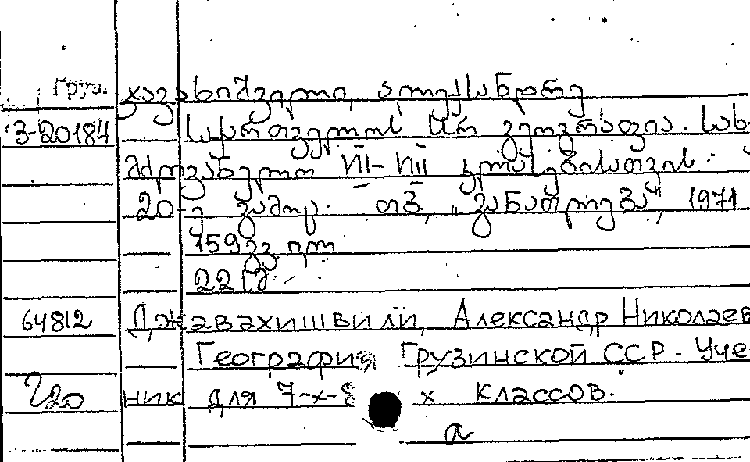 Груз. ჯავახიშვილი, ალექსანდრე
3-20184 საქართველოს სსრ გეოგრაფია. სახ-
მძღვანელო VII-VIII კლასებისათვის.
20-ე გამოც. თბ., "განათლება", 1971
159 გვ.
22 კ.
64812 Джавахишвили, Александр Николаев
География Грузинской ССР. Уче
ник для 7-х-8 х классов.
а